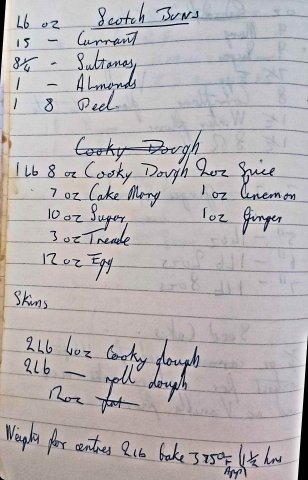 Lb oz Scotch Buns
15 - Currant
8¼ - Sultanas
1 - Almonds
1 8 Peel
Cooky Dough
1 Lb 8 oz Cooky Dough 2 oz Spice
7 oz Cake Marg 1 oz Cinemon
10 oz Sugar 1 oz Ginger
3 oz Treacle
12 oz Egg
Skins
2 Lb 4 oz Cooky dough
2 Lb - roll dough
12 oz fat
Weights for centres 2 Lb bake 375°F App 1½ hrs